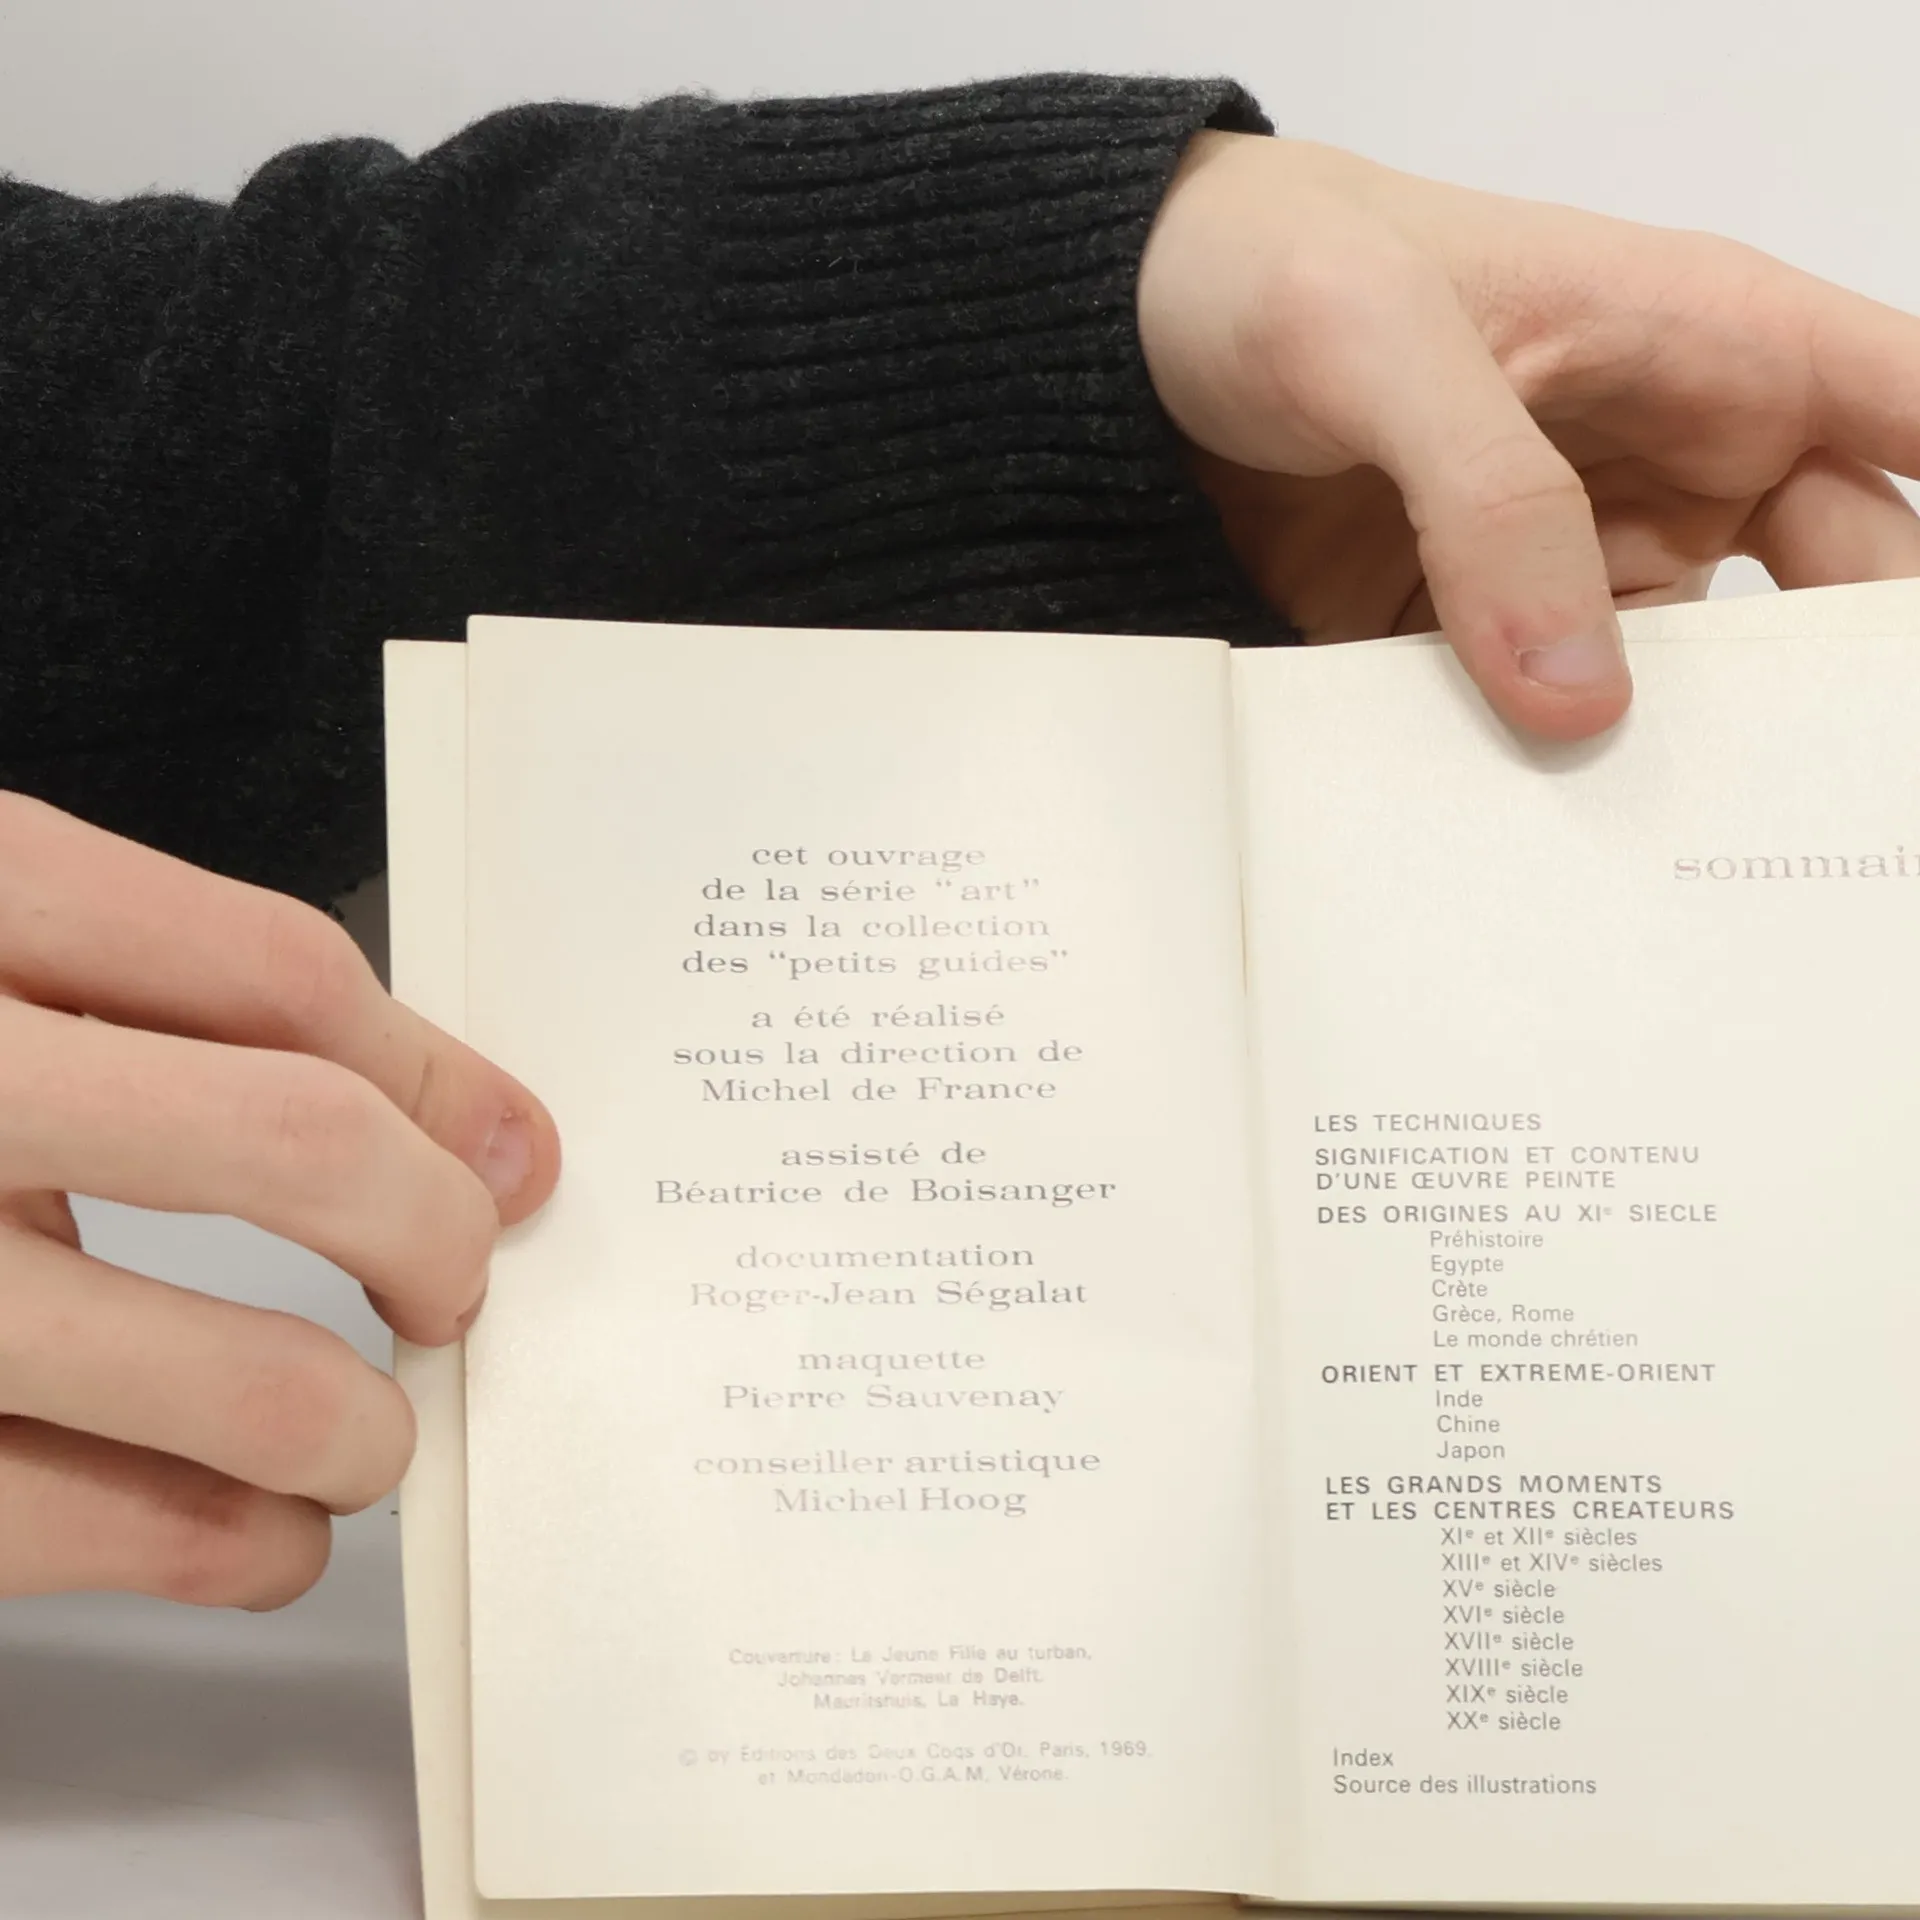 cet ouvrage
de la série “art”
dans la collection
des “petits guides”
a été réalisé
sous la direction de
Michel de France
assisté de
Béatrice de Boisanger
documentation
Roger-Jean Ségalat
maquette
Pierre Sauvenay
conseiller artistique
Michel Hoog
Couverture : La Jeune Fille au turban,
Johannes Vermeer de Delft.
Mauritshuis, La Haye.
© by Éditions des Deux Coqs d'Or, Paris, 1969.
et Mondadori-O.G.A.M. Vérone.
sommair
LES TECHNIQUES
SIGNIFICATION ET CONTENU
D'UNE ŒUVRE PEINTE
DES ORIGINES AU XIe SIECLE
Préhistoire
Egypte
Crète
Grèce, Rome
Le monde chrétien
ORIENT ET EXTREME-ORIENT
Inde
Chine
Japon
LES GRANDS MOMENTS
ET LES CENTRES CREATEURS
XIe et XIIe siècles
XIIIe et XIVe siècles
XVe siècle
XVIe siècle
XVIIe siècle
XVIIIe siècle
XIXe siècle
XXe siècle
Index
Source des illustrations